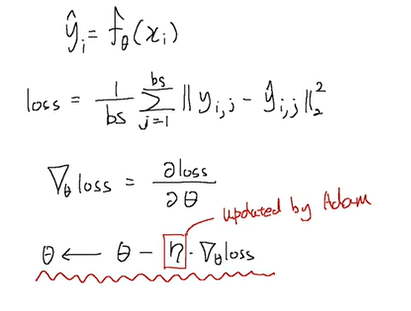 ŷᵢ = f̂_θ(xᵢ)
loss = 1/bs ∑_{j=1}^{bs} ‖y_{i,j} − ŷ_{i,j}‖₂²
∇_θ loss = ∂loss/∂θ
updated by Adam
θ ← θ − η · ∇_θ loss